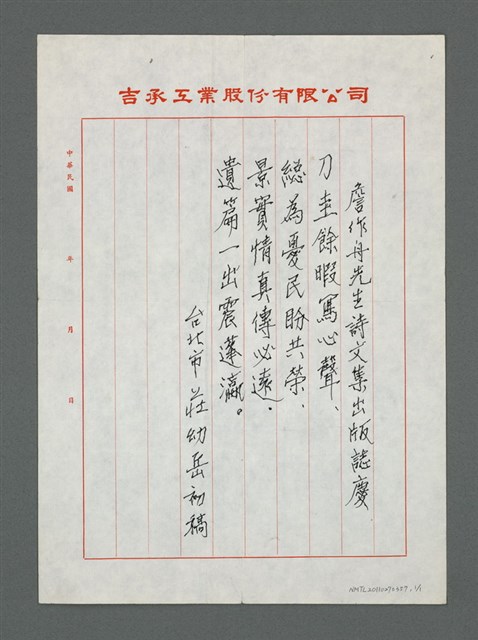 吉承工業股份有限公司
詹作舟先生詩文集出版誌慶
刀圭餘暇寫心聲、
總為憂民盼共榮、
景實情真傳必遠.
遺篇一出震蓬瀛。
台北市莊幼岳初稿
中華民國 年 月 日
NMTL20110270357, 1/1